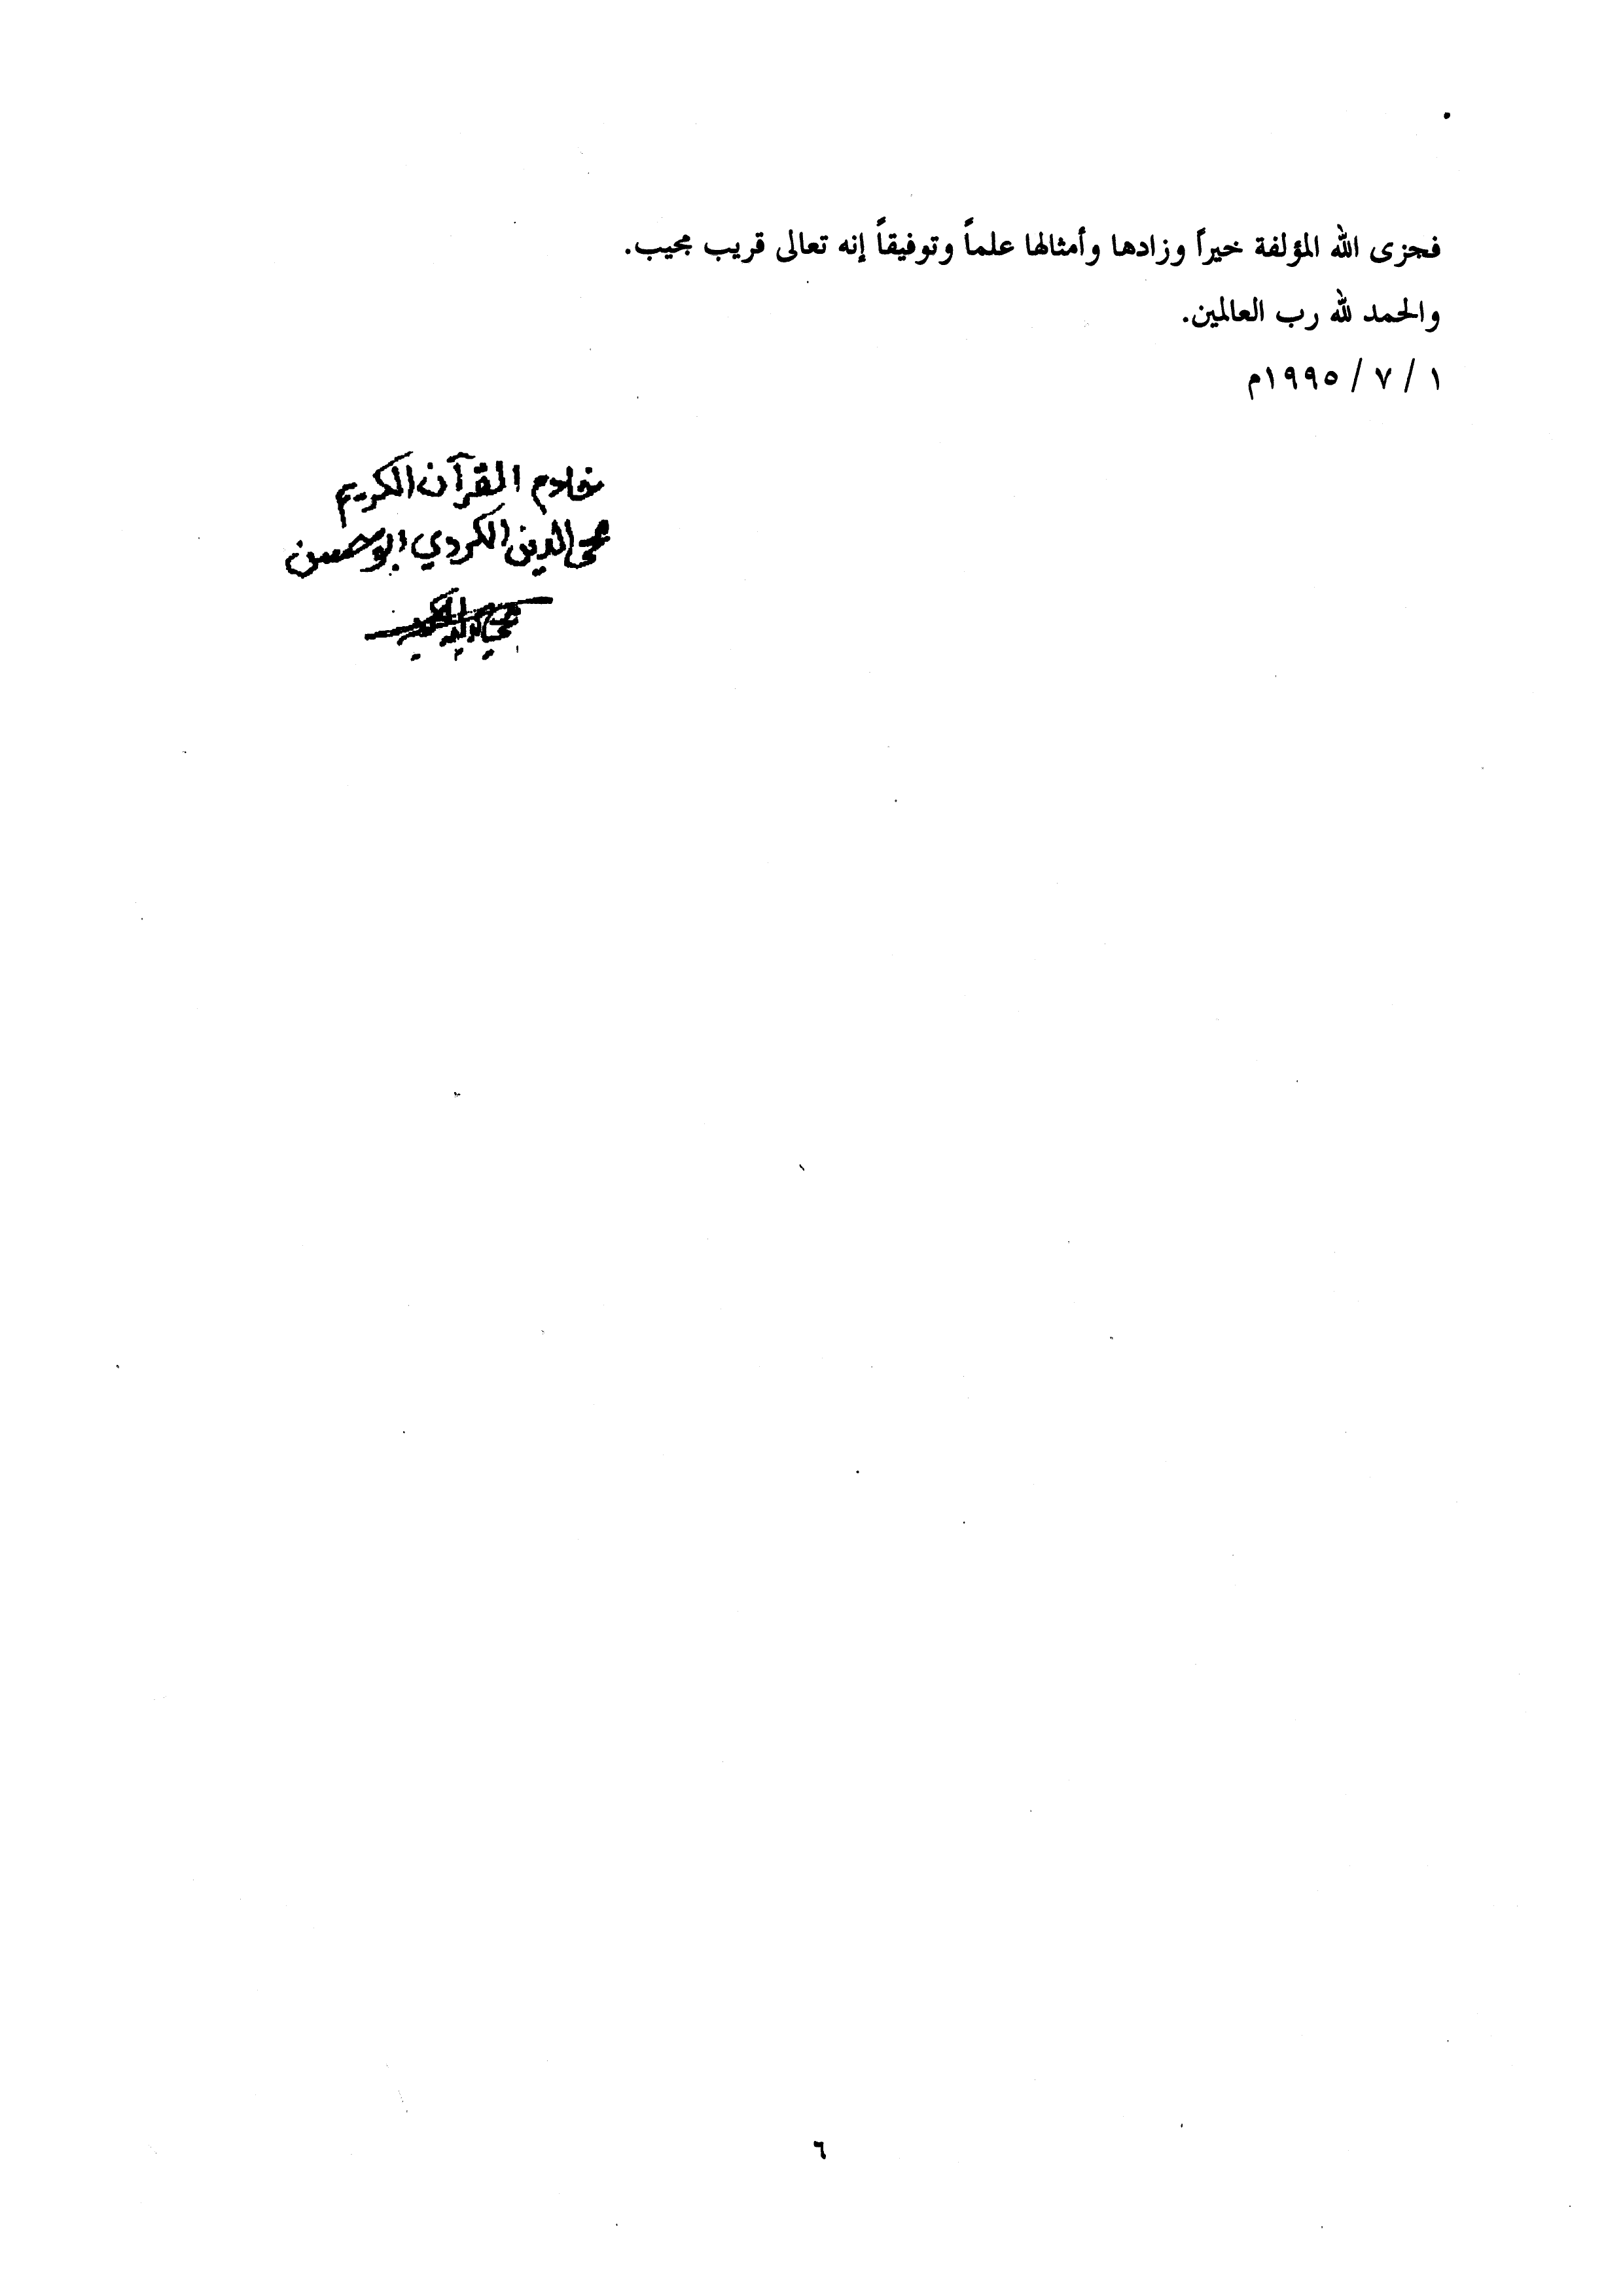 فجزى الله المؤلفة خيراً وزادها وأمثالها علماً وتوفيقاً إنه تعالى قريب مجيب.
والحمد لله رب العالمين.
١ / ٧ / ١٩٩٥م
خادم القرآن الكريم
محي الدين الكردي ابو حسن
٦